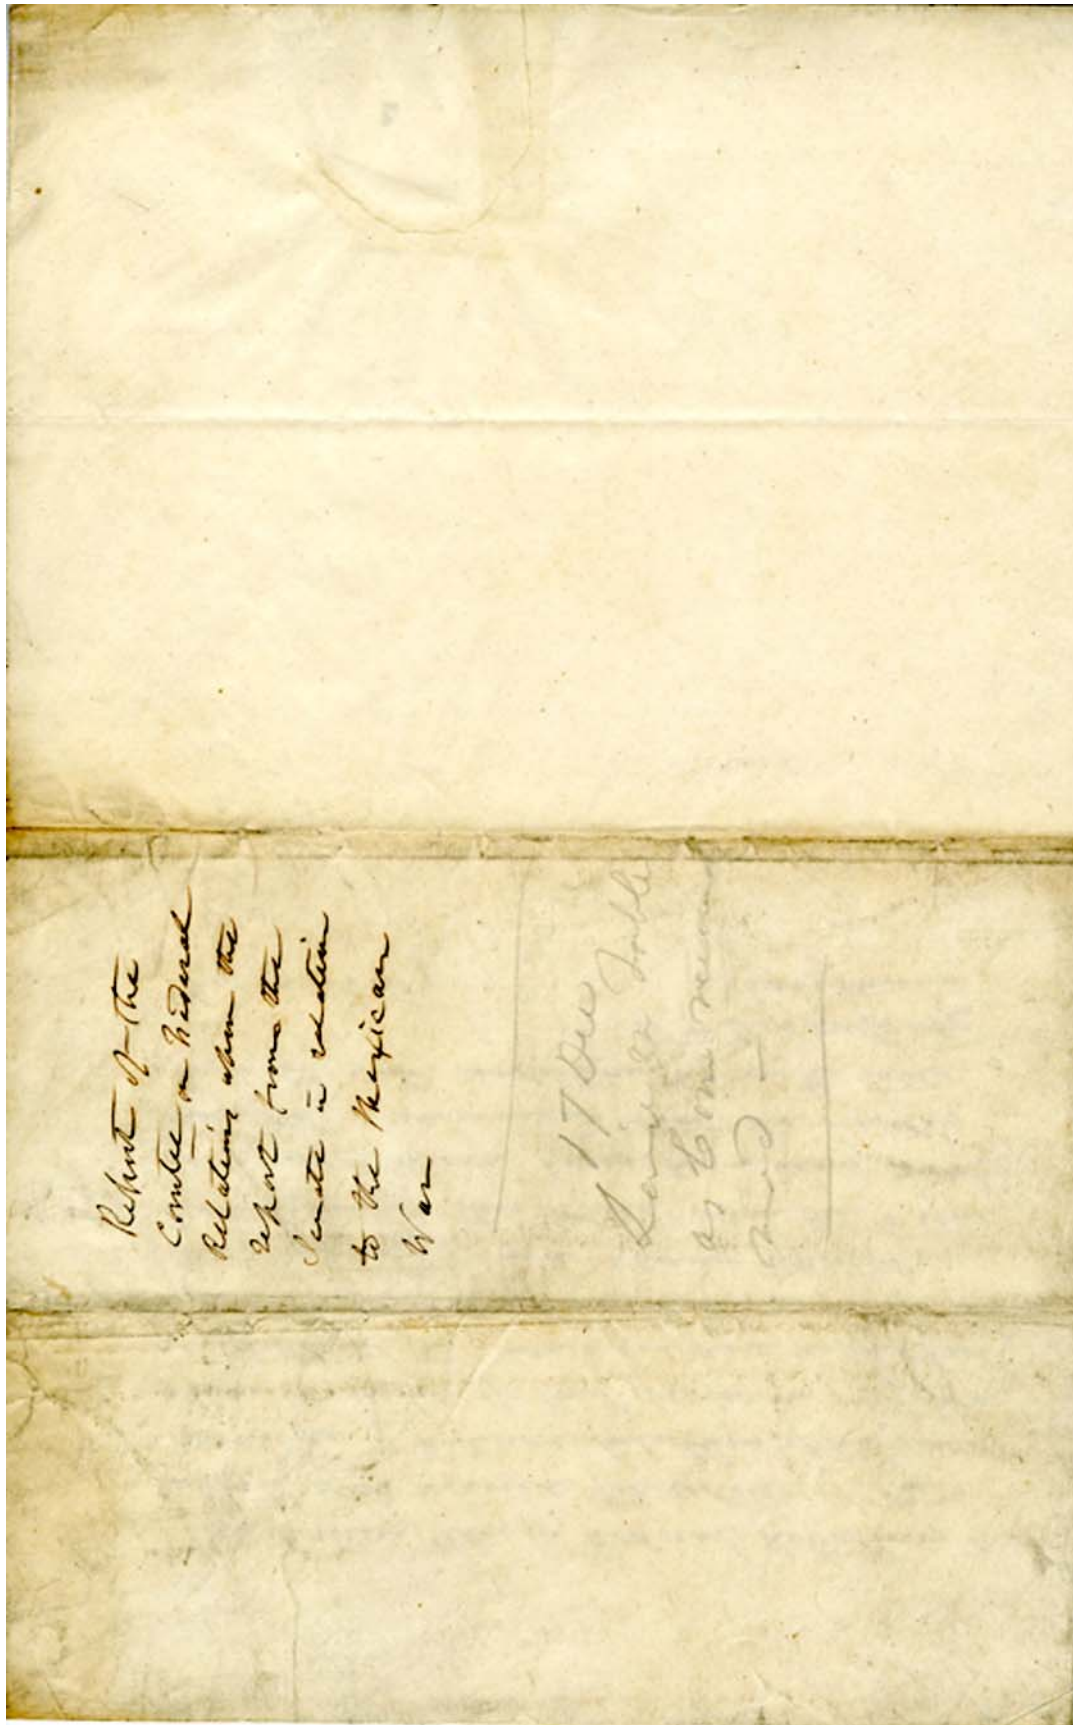 Report of the
Comtee on Federal
Relations upon the
report from the
Senate in relation
to the Mexican
War
17 Dec
Laid on Table
as Com mem